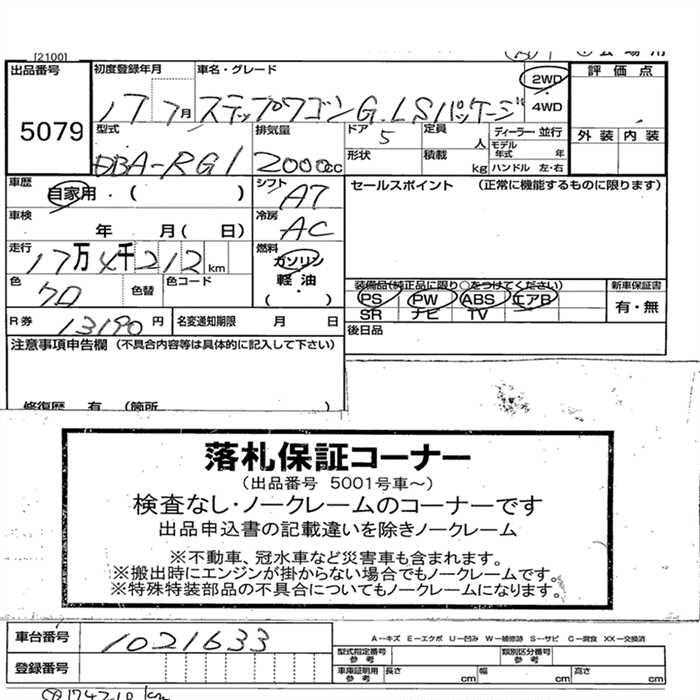 [2100]
出品番号 初度登録年月 車名・グレード 2WD 評価点
5079 17 7月 ステップワゴン G.LSパッケージ ・4WD
型式 排気量 ドア 5 定員 人 ディーラー・並行 外装 内装
DBA-RG1 2000cc 形状 積載 kg モデル年式 年
ハンドル 左・右
車歴 自家用・( ) シフト AT セールスポイント (正常に機能するものに限ります)
車検 年 月( 日) 冷房 AC
走行 17万4千212km 燃料 ガソリン・軽油・( )
装備品(純正品に限り○をつけてください) 新車保証書
色 クロ 色替 色コード PS PW ABS エアB 有・無
SR ナビ TV
R券 13190円 名変通知期限 月 日 後日品
注意事項申告欄 (不具合内容等は具体的に記入して下さい)
修復歴 有 (箇所
落札保証コーナー
(出品番号 5001号車～)
検査なし・ノークレームのコーナーです
出品申込書の記載違いを除きノークレーム
※不動車、冠水車など災害車も含まれます。
※搬出時にエンジンが掛からない場合でもノークレームです。
※特殊特装部品の不具合についてもノークレームになります。
A−キズ E−エクボ U−凹み W−補修跡 S−サビ C−腐食 XX−交換済
車台番号 1021633 型式指定番号 参考 類別区分番号 参考
登録番号 車庫証明用 参考 長さ cm 幅 cm 高さ cm